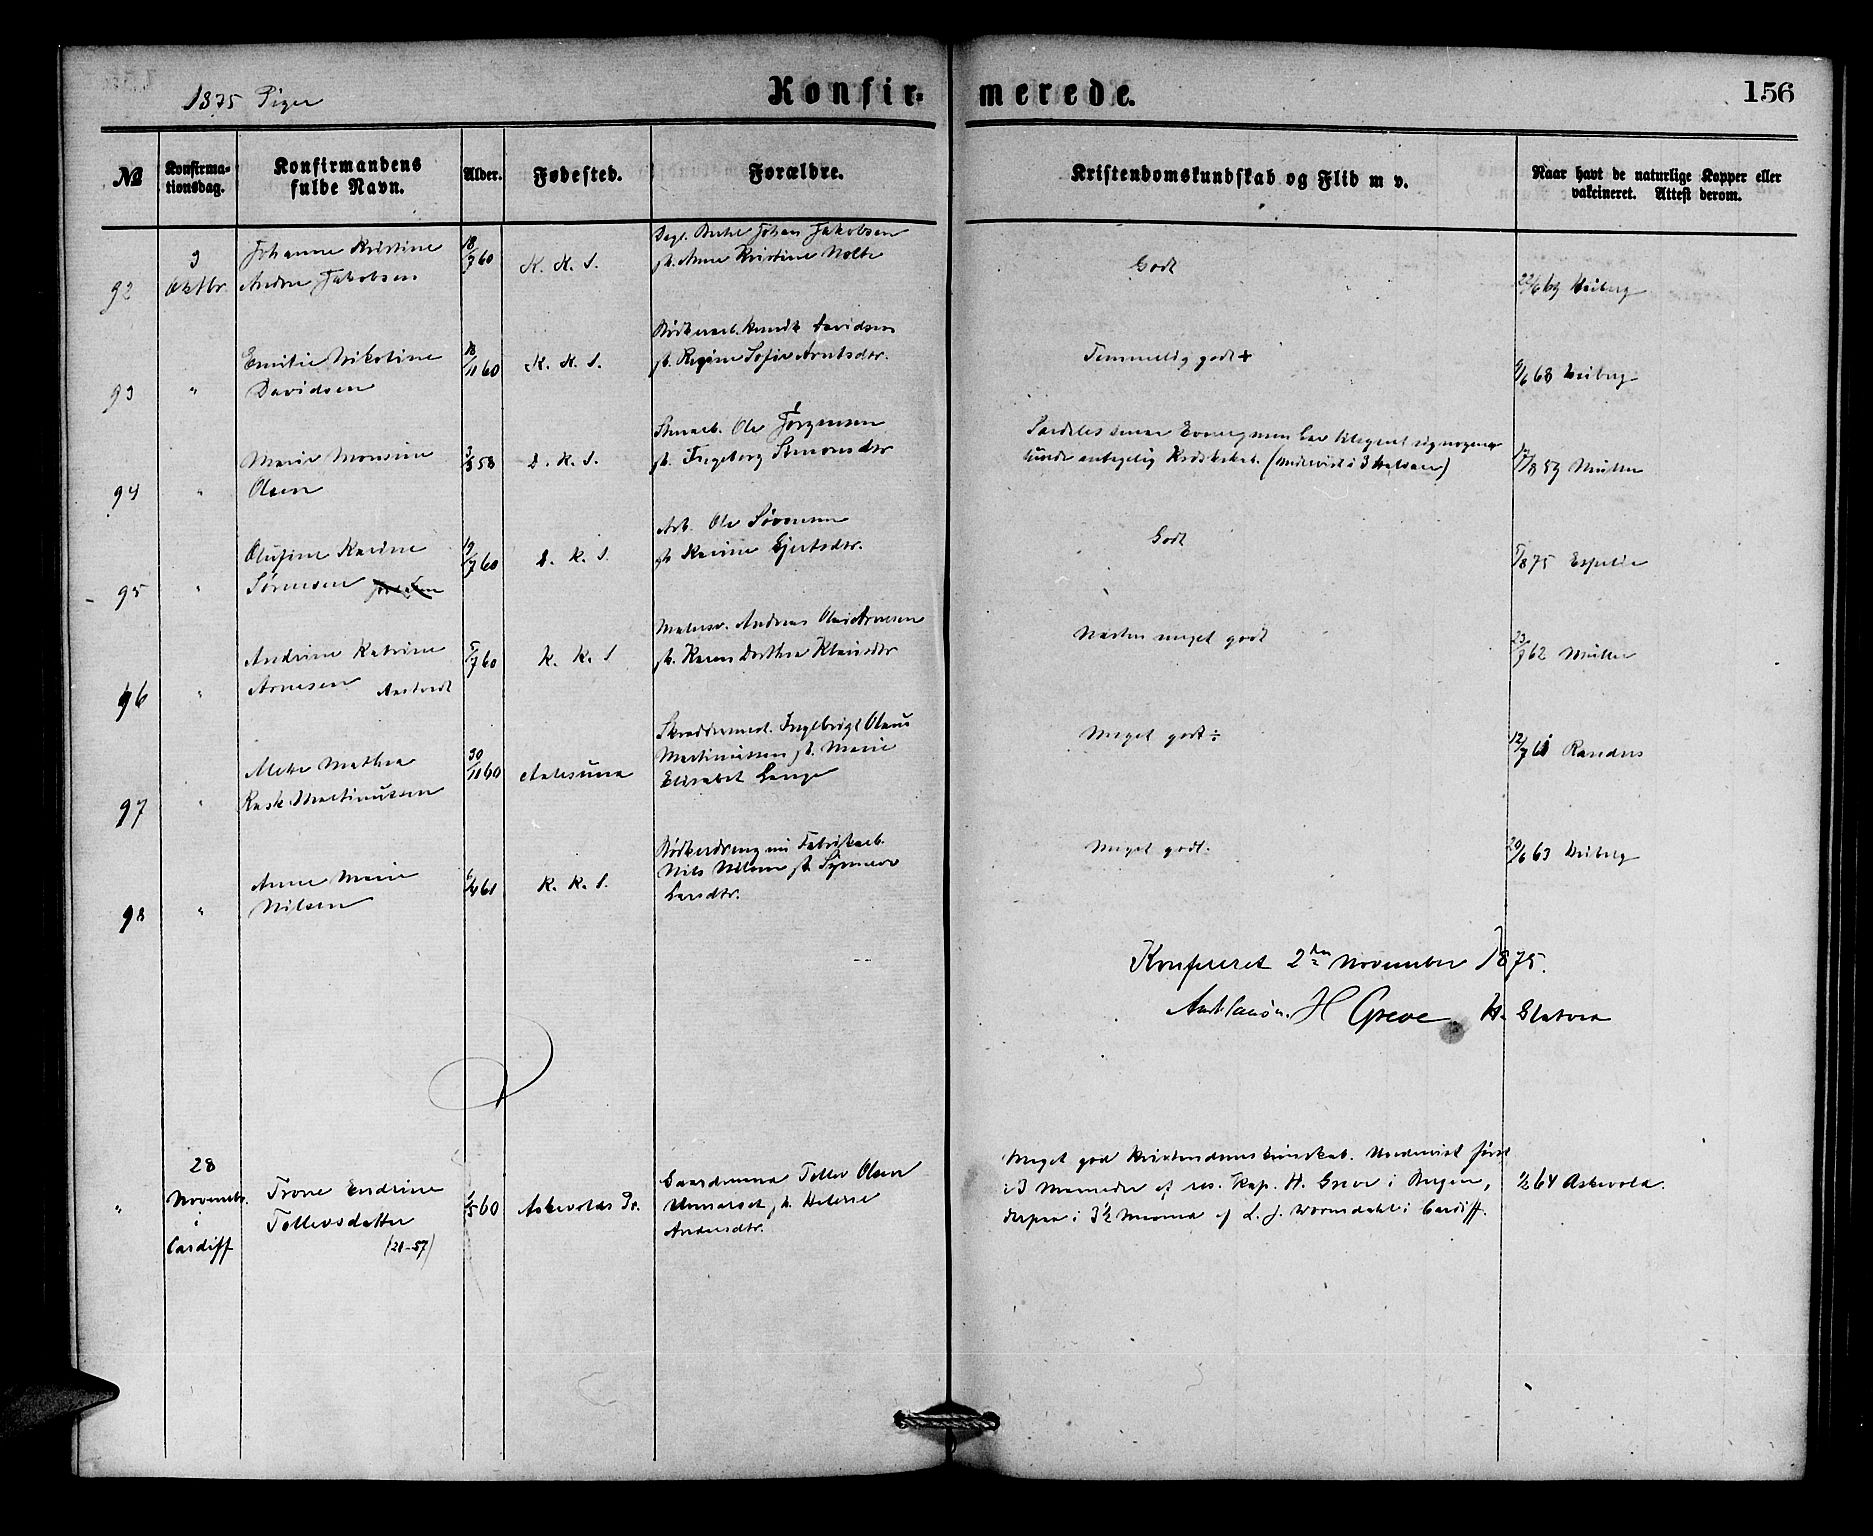 1875 Piger
Konfir-
merede.
156
№
Konfirma-
tionsdag.
Konfirmandens
fulde Navn.
Alder.
Fødested.
Forældre.
Kristendomskundskab og Flid m v.
Naar havt de naturlige Kopper eller
vakcineret. Attest derom.
92
3
Oktbr.
Johanne Kristine
Andrea Jakobsen
18/7 60
K. K. S.
Johan Jakobsen
Anne Kristine Nolte
Godt
22/6 69 Heiberg
93
"
Emilie Nikoline
Davidsen
18/11 60
K. K. S.
Davidsen
Regine Sofie Arntsdtr.
Temmelig godt +
68 Heiberg
94
"
Marie Monsine
Olsen
58
D. K. S.
Ole Jørgensen
Ingeborg Simonsdtr
Særdeles
Kristskab. (Undervist i 3 Halvaar)
17/8 59 Müller
95
"
Olufine Karine
Sørensen
19/7 60
D. K. S.
Arb. Ole Sørensen
Karine Gjertsdtr.
Godt
/8 75
96
"
Andrine Katrine
Arnesen
5/7 60
K. K. S
Malersv. Andreas Olai Arnesen
Karen Dorthea Klausdtr
Næsten meget godt
23/9 62 Müller
97
"
Mette Mathea
Rask Martinussen
30/11 60
Aalesund
Skreddermed. Ingebrigt Olaus
Martinussen Marie
Elisabet Lange
Meget godt ÷
12/9 61 Randers
98
"
Anne Marie
Nilsen
61
K. K. S.
Bødkerdreng nu Fabrikarb.
Nils Nilsen Synneve
Larsdtr.
Meget godt.
29/6 63 Heiberg
Konfereret 2den November 1875.
H Greve
"
28
Novembr.
i
Cardiff
Trone Endrine
Tollevsdatter
(21-57)
60
Askevolds Pr.
Gaardmand Tollev Olsen
Helene
Andersdtr.
Meget god Kristendomskundskab. Undervist først
i 3 Maaneder af res. Kap. H. Greve i Bergen,
derpaa i 3½ Maaned af L. J. Wormsdahl i Cardiff.
64 Askevold.